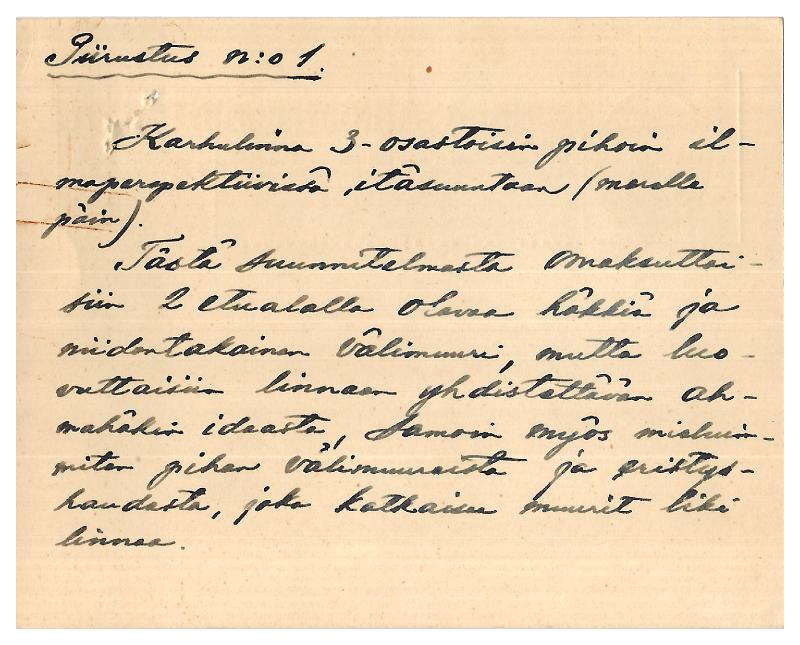 Piirustus n:o 1.
Karhulinna 3-osastoisin pihoin il-
maperspektiivissä, itäsuuntaan (merelle
päin).
Tästä suunnitelmasta omaksuttai-
siin 2 etualalla olevaa häkkiä ja
niidentakainen välimuuri, mutta luo-
vuttaisiin linnaan yhdistettävän ah-
mahäkin ideasta, samoin myös mieluim-
miten pihan välimuureista ja eristys-
haudasta, joka katkaisee muurit liki
linnaa.